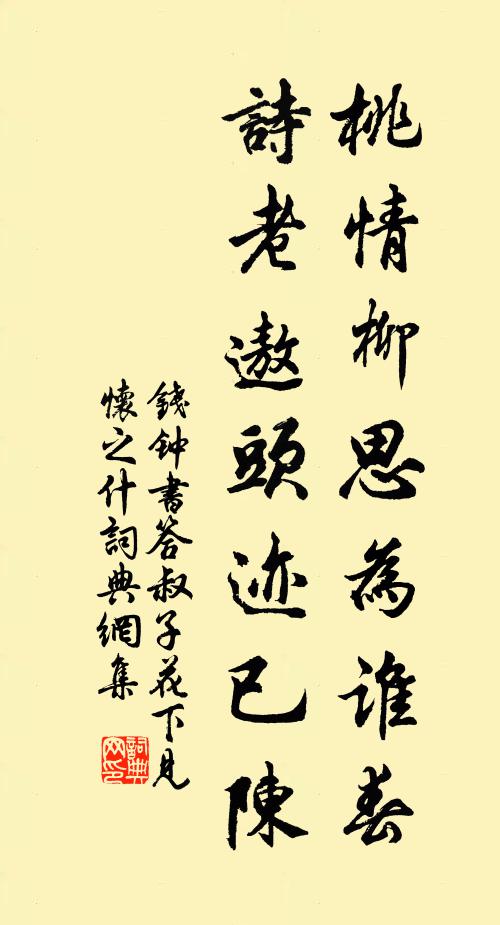 桃情柳思為誰春
詩老遨頭迹已陳
錢钟書答叔子花下見
懷之什詞典網集
詞典
网印